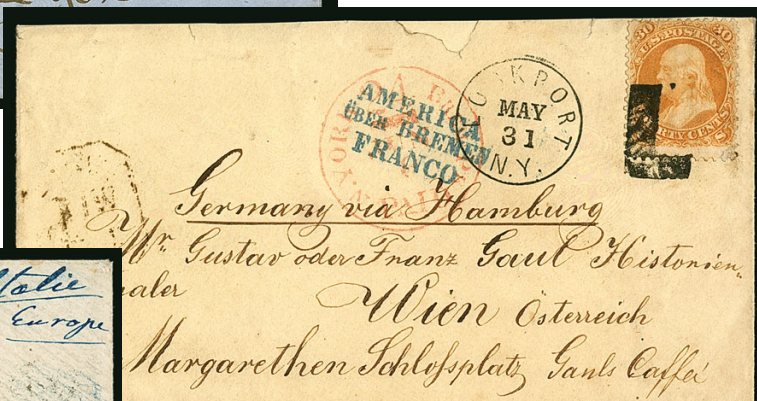 30 U.S. POSTAGE 30
AMERICA
ÜBER BREMEN
FRANCO
LOCKPORT
MAY
31
N.Y.
Germany via Hamburg
Mr Gustav oder Franz Gaul Historien-
maler
Wien Österreich
Margarethen Schloßplatz Gauls Caffeé
Italie
Europe